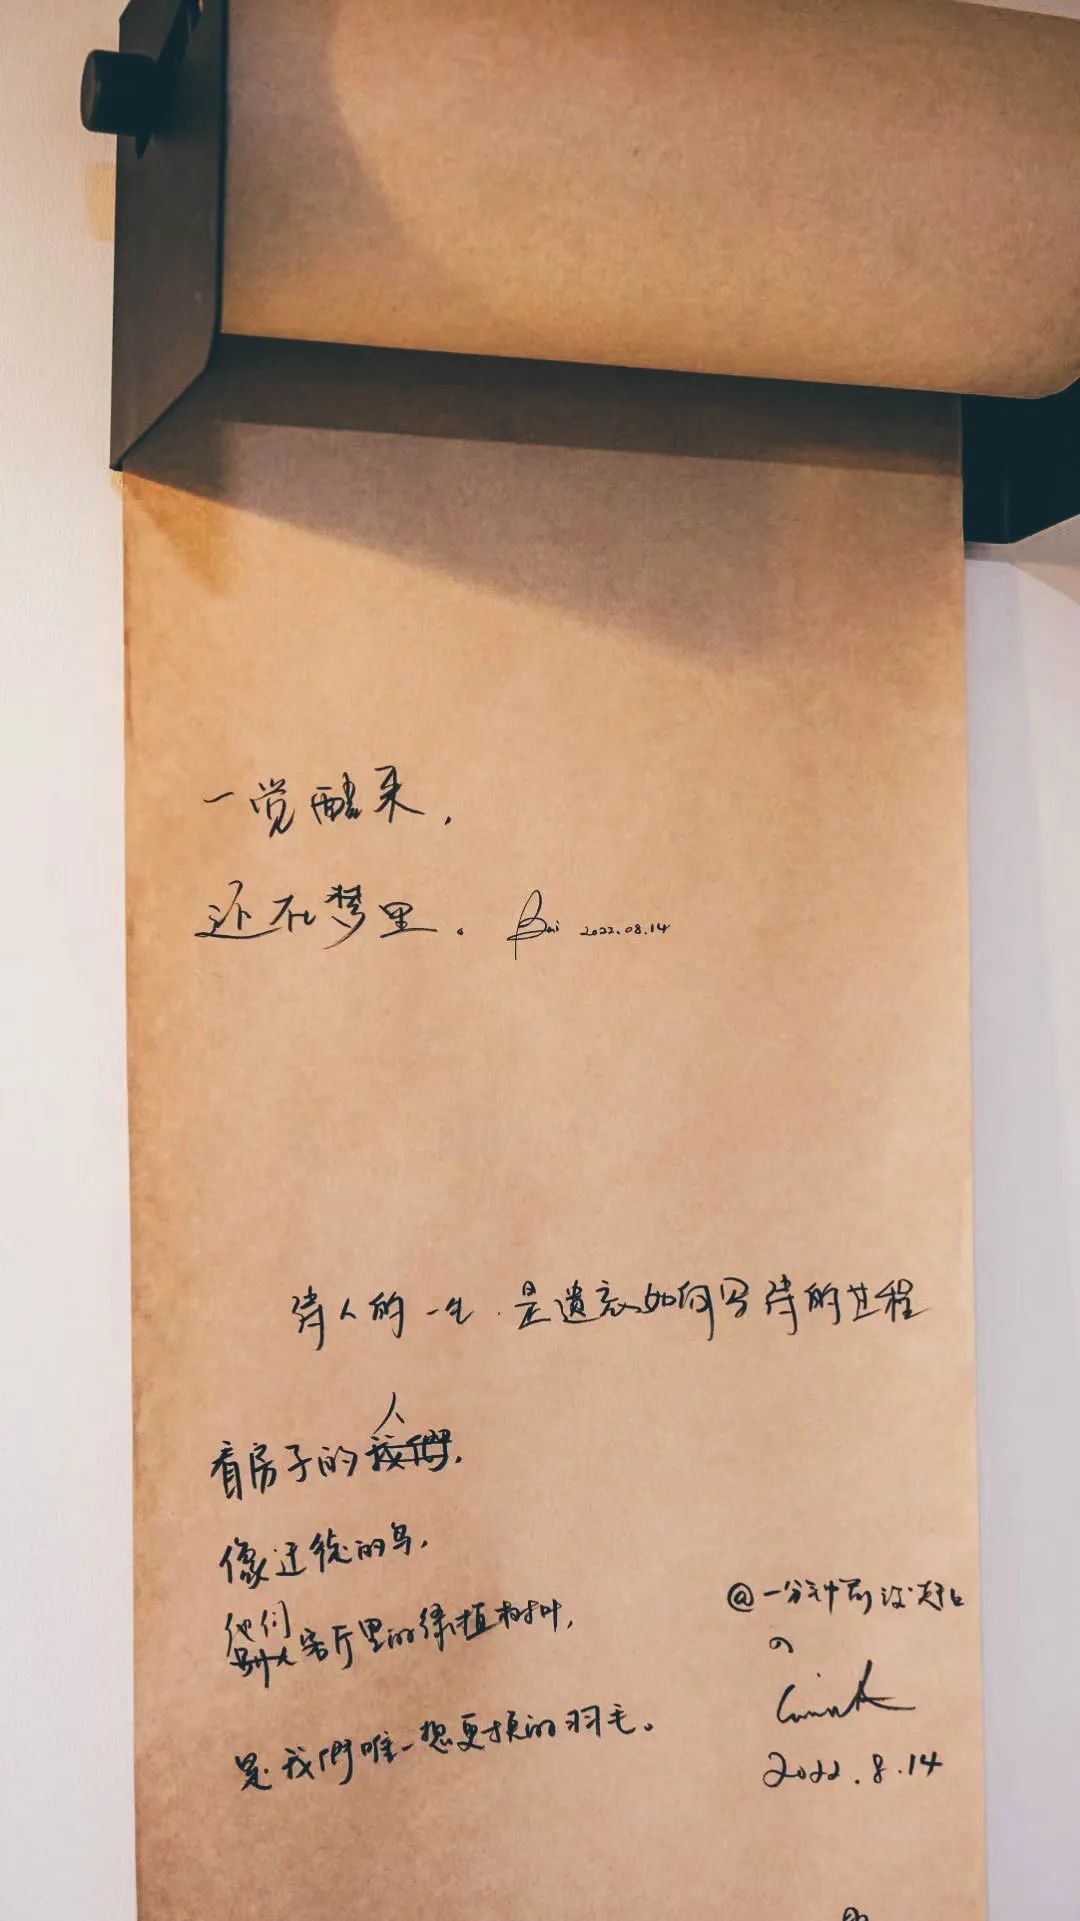 一觉醒来,
还在梦里。 Bai 2022.08.14
诗人的一生.是遗忘如何写诗的过程
看房子的人,
像迁徙的鸟,
他们
客厅里的绿植树叶,
是我們唯一想更换的羽毛。
@一分钟前
の
2022.8.14